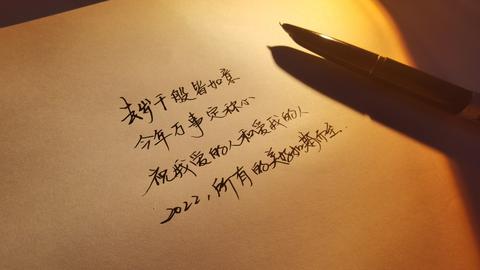 去岁千般皆如意
今年万事定称心
祝我爱的人和爱我的人
2022，所有的美好如期而至.